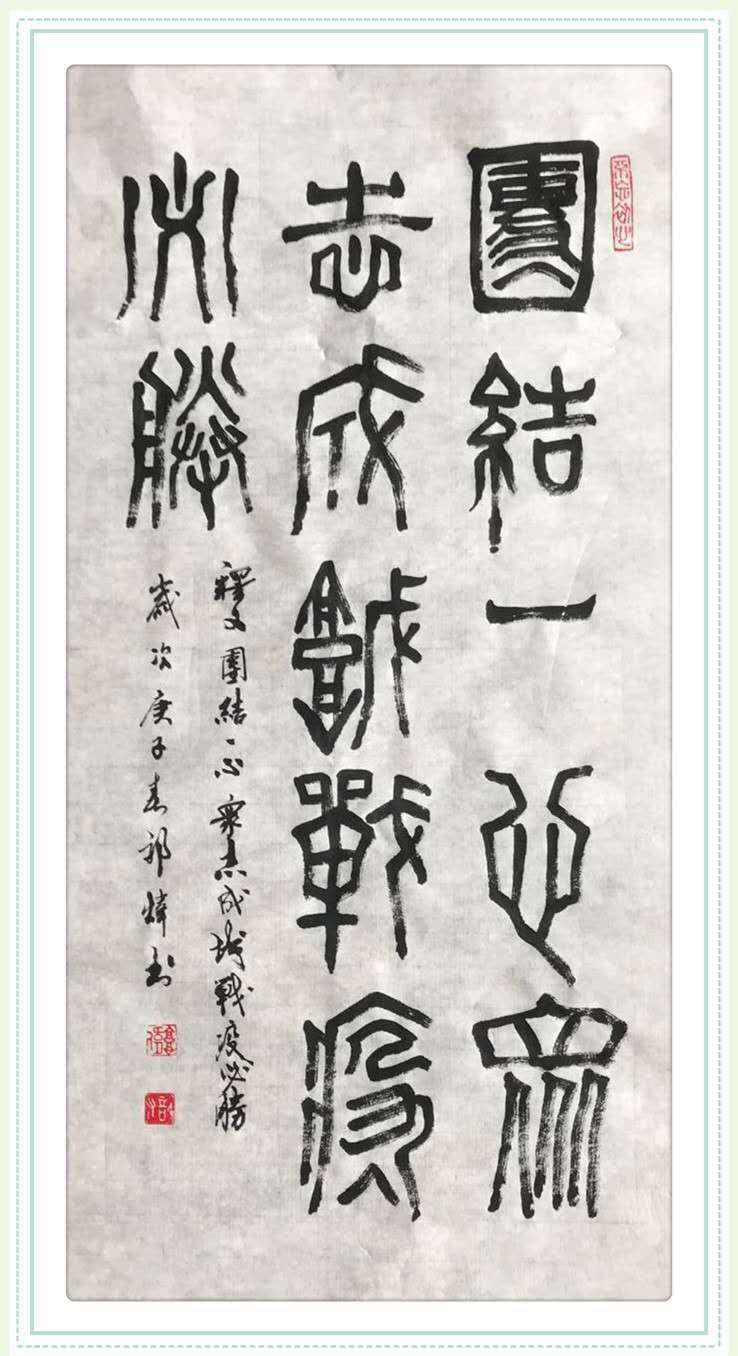 團結一心眾
志成城戰疫
必勝
釋文團結一心眾志成城戰疫必勝
歲次庚子春郭煒書
不忘初心